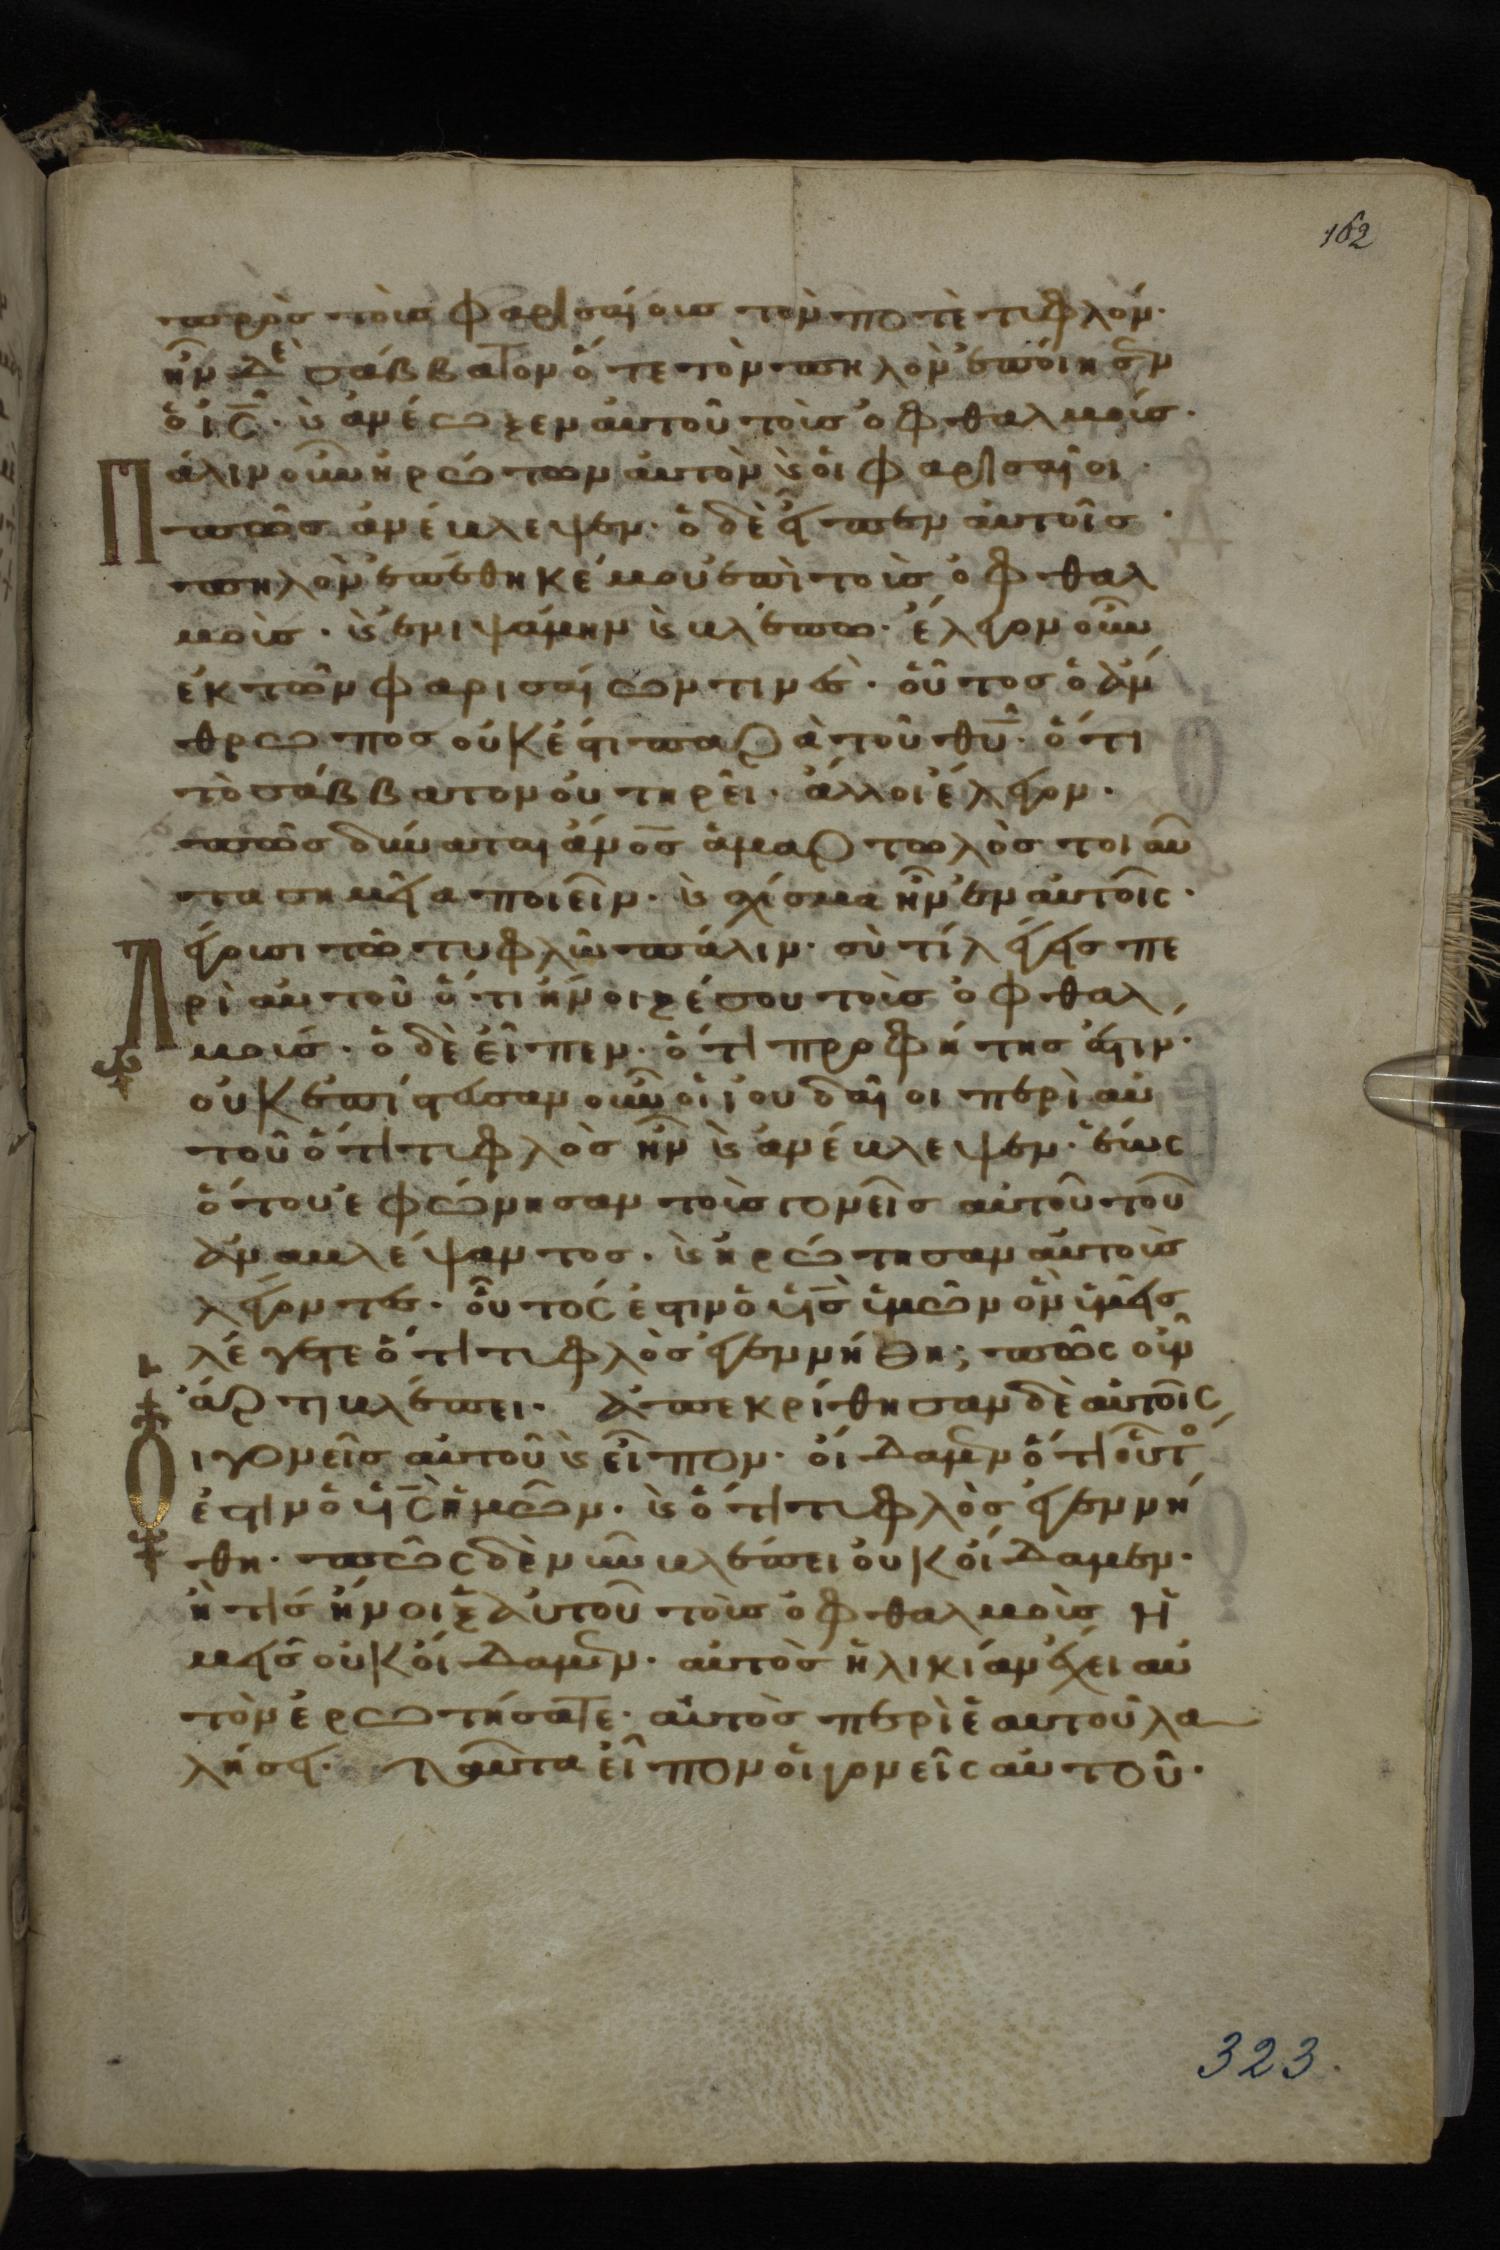 162
πρὸς τοὺς φαρισαίους τὸν ποτὲ τυφλόν·
ἦν δὲ σάββατον ὅτε τὸν πηλὸν ἐποίησεν
ὁ ις̅· ϗ ἀνέωξεν αὐτοῦ τοὺς ὀφθαλμούς·
Πάλιν οὖν ἠρώτων αὐτὸν ϗ οἱ φαρισαῖοι·
πῶς ἀνέβλεψεν· ὁ δὲ εἶπεν αὐτοῖς·
πηλὸν ἐπέθηκέ μου ἐπὶ τοὺς ὀφθαλ
μοὺς· ϗ ἐνιψάμην ϗ βλέπω· ἔλεγον οὖν
ἐκ τῶν φαρισαίων τινὲς· οὗτος ὁ ἄν
θρωπος οὐκ ἔστι παρὰ τοῦ θυ̅· ὅτι
τὸ σάββατον οὐ τηρεῖ· ἄλλοι ἔλεγον·
πῶς δύναται ἀνος̅ ἁμαρτωλὸς τοιαῦ
τα σημεῖα ποιεῖν· ϗ σχίσμα ἦν ἐν αὐτοῖς·
Λέγουσι τῶ τυφλῶ πάλιν· σὺ τί λέγεις πε
ρὶ αὐτοῦ ὅτι ἤνοιξέ σου τοὺς ὀφθαλ
μούς· ὁ δὲ εἶπεν· ὅτι προφήτης ἐστιν·
οὐκ ἐπίστευσαν οὖν οἱ ἰουδαῖοι περὶ αὐ
τοῦ ὅτι τυφλὸς ἦν ϗ ἀνέβλεψεν· ἕως
ὅτου ἐφώνησαν τοὺς γονεῖς αὐτοῦ τοῦ
ἀναβλέψαντος· ϗ ἠρώτησαν αὐτοὺς
λέγοντες· οὗτος ἐστιν ὁ υἱς̅ ὑμῶν ὃν ὑμεῖς
λέγετε ὅτι τυφλὸς ἐγεννήθη; πῶς οὖν
ἄρτι βλέπει· ἀπεκρίθησαν δὲ αὐτοῖς
Οἱ γονεῖς αὐτοῦ ϗ εἶπον· οἴδαμεν ὅτι οὗτο
ἐστιν ὁ υἱς̅ ἡμῶν· ϗ ὅτι τυφλὸς ἐγεννή
θη· πῶς δὲ νῦν βλέπει οὐκ οἴδαμεν·
ἢ τίς ἤνοιξε αὐτοῦ τοὺς ὀφθαλμοὺς ἡ
μεῖς οὐκ οἴδαμεν· αὐτὸς ἡλικίαν ἔχει αὐ
τὸν ἐρωτήσατε· αὐτὸς περὶ ἑαυτοῦ λα
λήσει· ταῦτα εἶπον οἱ γονεῖς αὐτοῦ·
323.